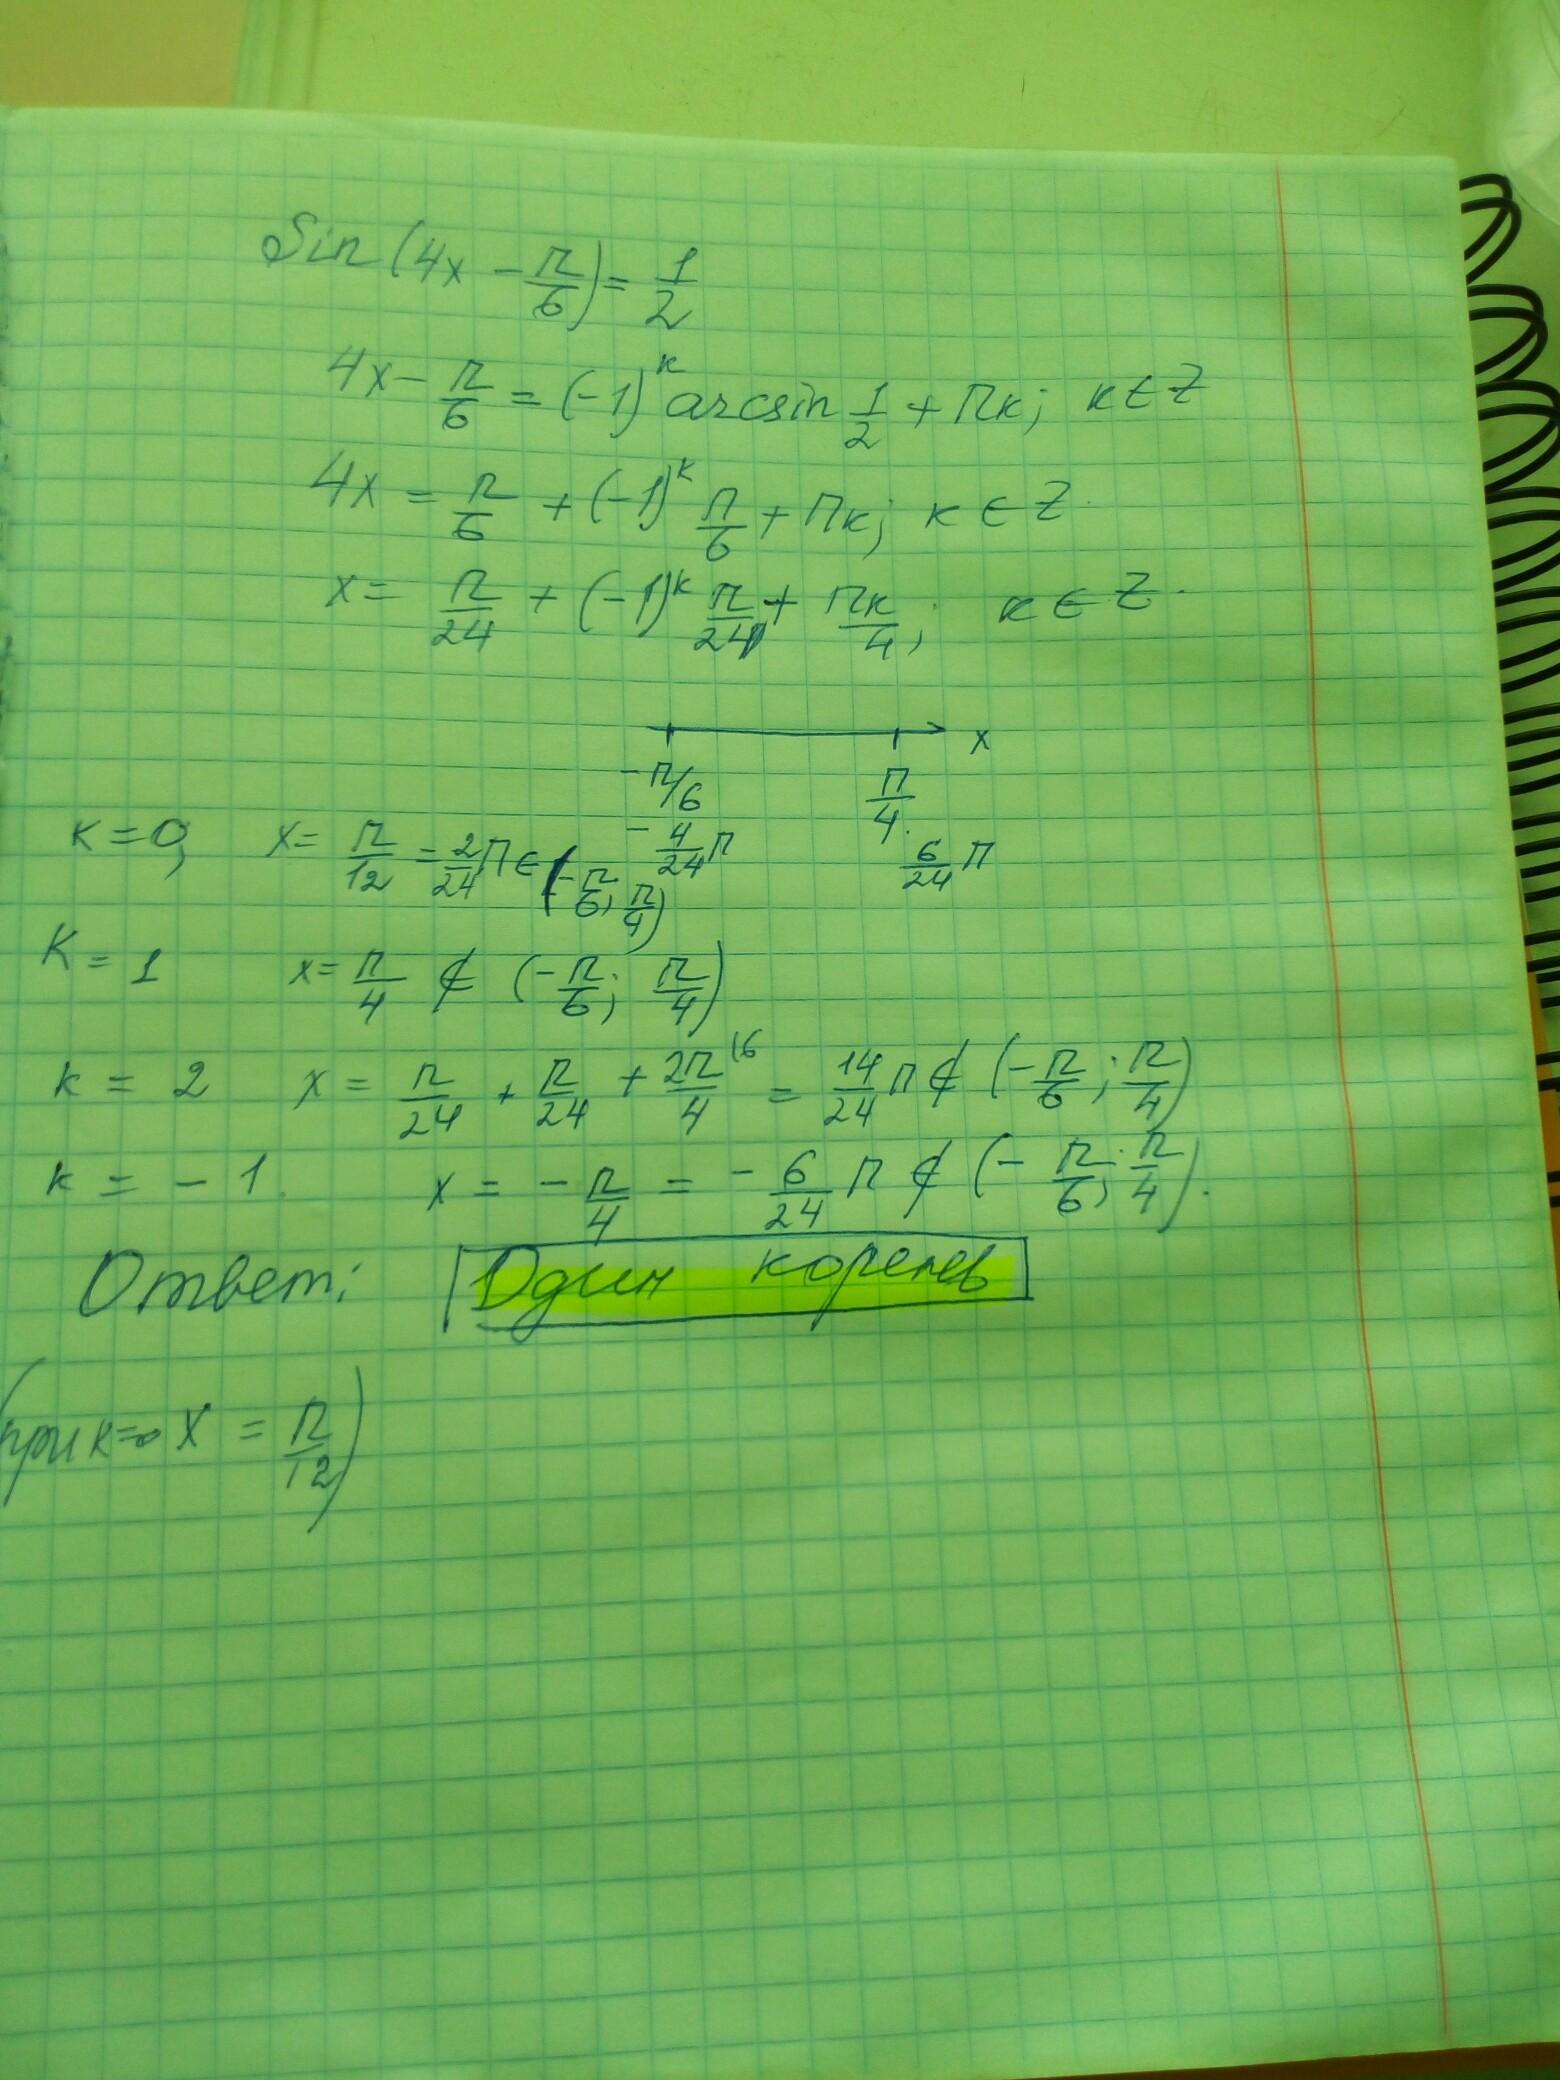 Sin (4x - π/6) = 1/2
4x - π/6 = (-1)^k arcsin 1/2 + πk; k ∈ Z
4x = π/6 + (-1)^k π/6 + πk; k ∈ Z.
x = π/24 + (-1)^k π/24 + πk/4; k ∈ Z.
x
-π/6 π/4.
-4/24 π 6/24 π
k = 0, x = π/12 = 2/24 π ∈ (-π/6; π/4)
K = 1 x = π/4 ∉ (-π/6; π/4)
k = 2 x = π/24 + π/24 + 2π/4 (6 = 14/24 π ∉ (-π/6; π/4)
k = -1. x = -π/4 = -6/24 π ∉ (-π/6; π/4).
Ответ: Один корень
(при k=0 x = π/12)